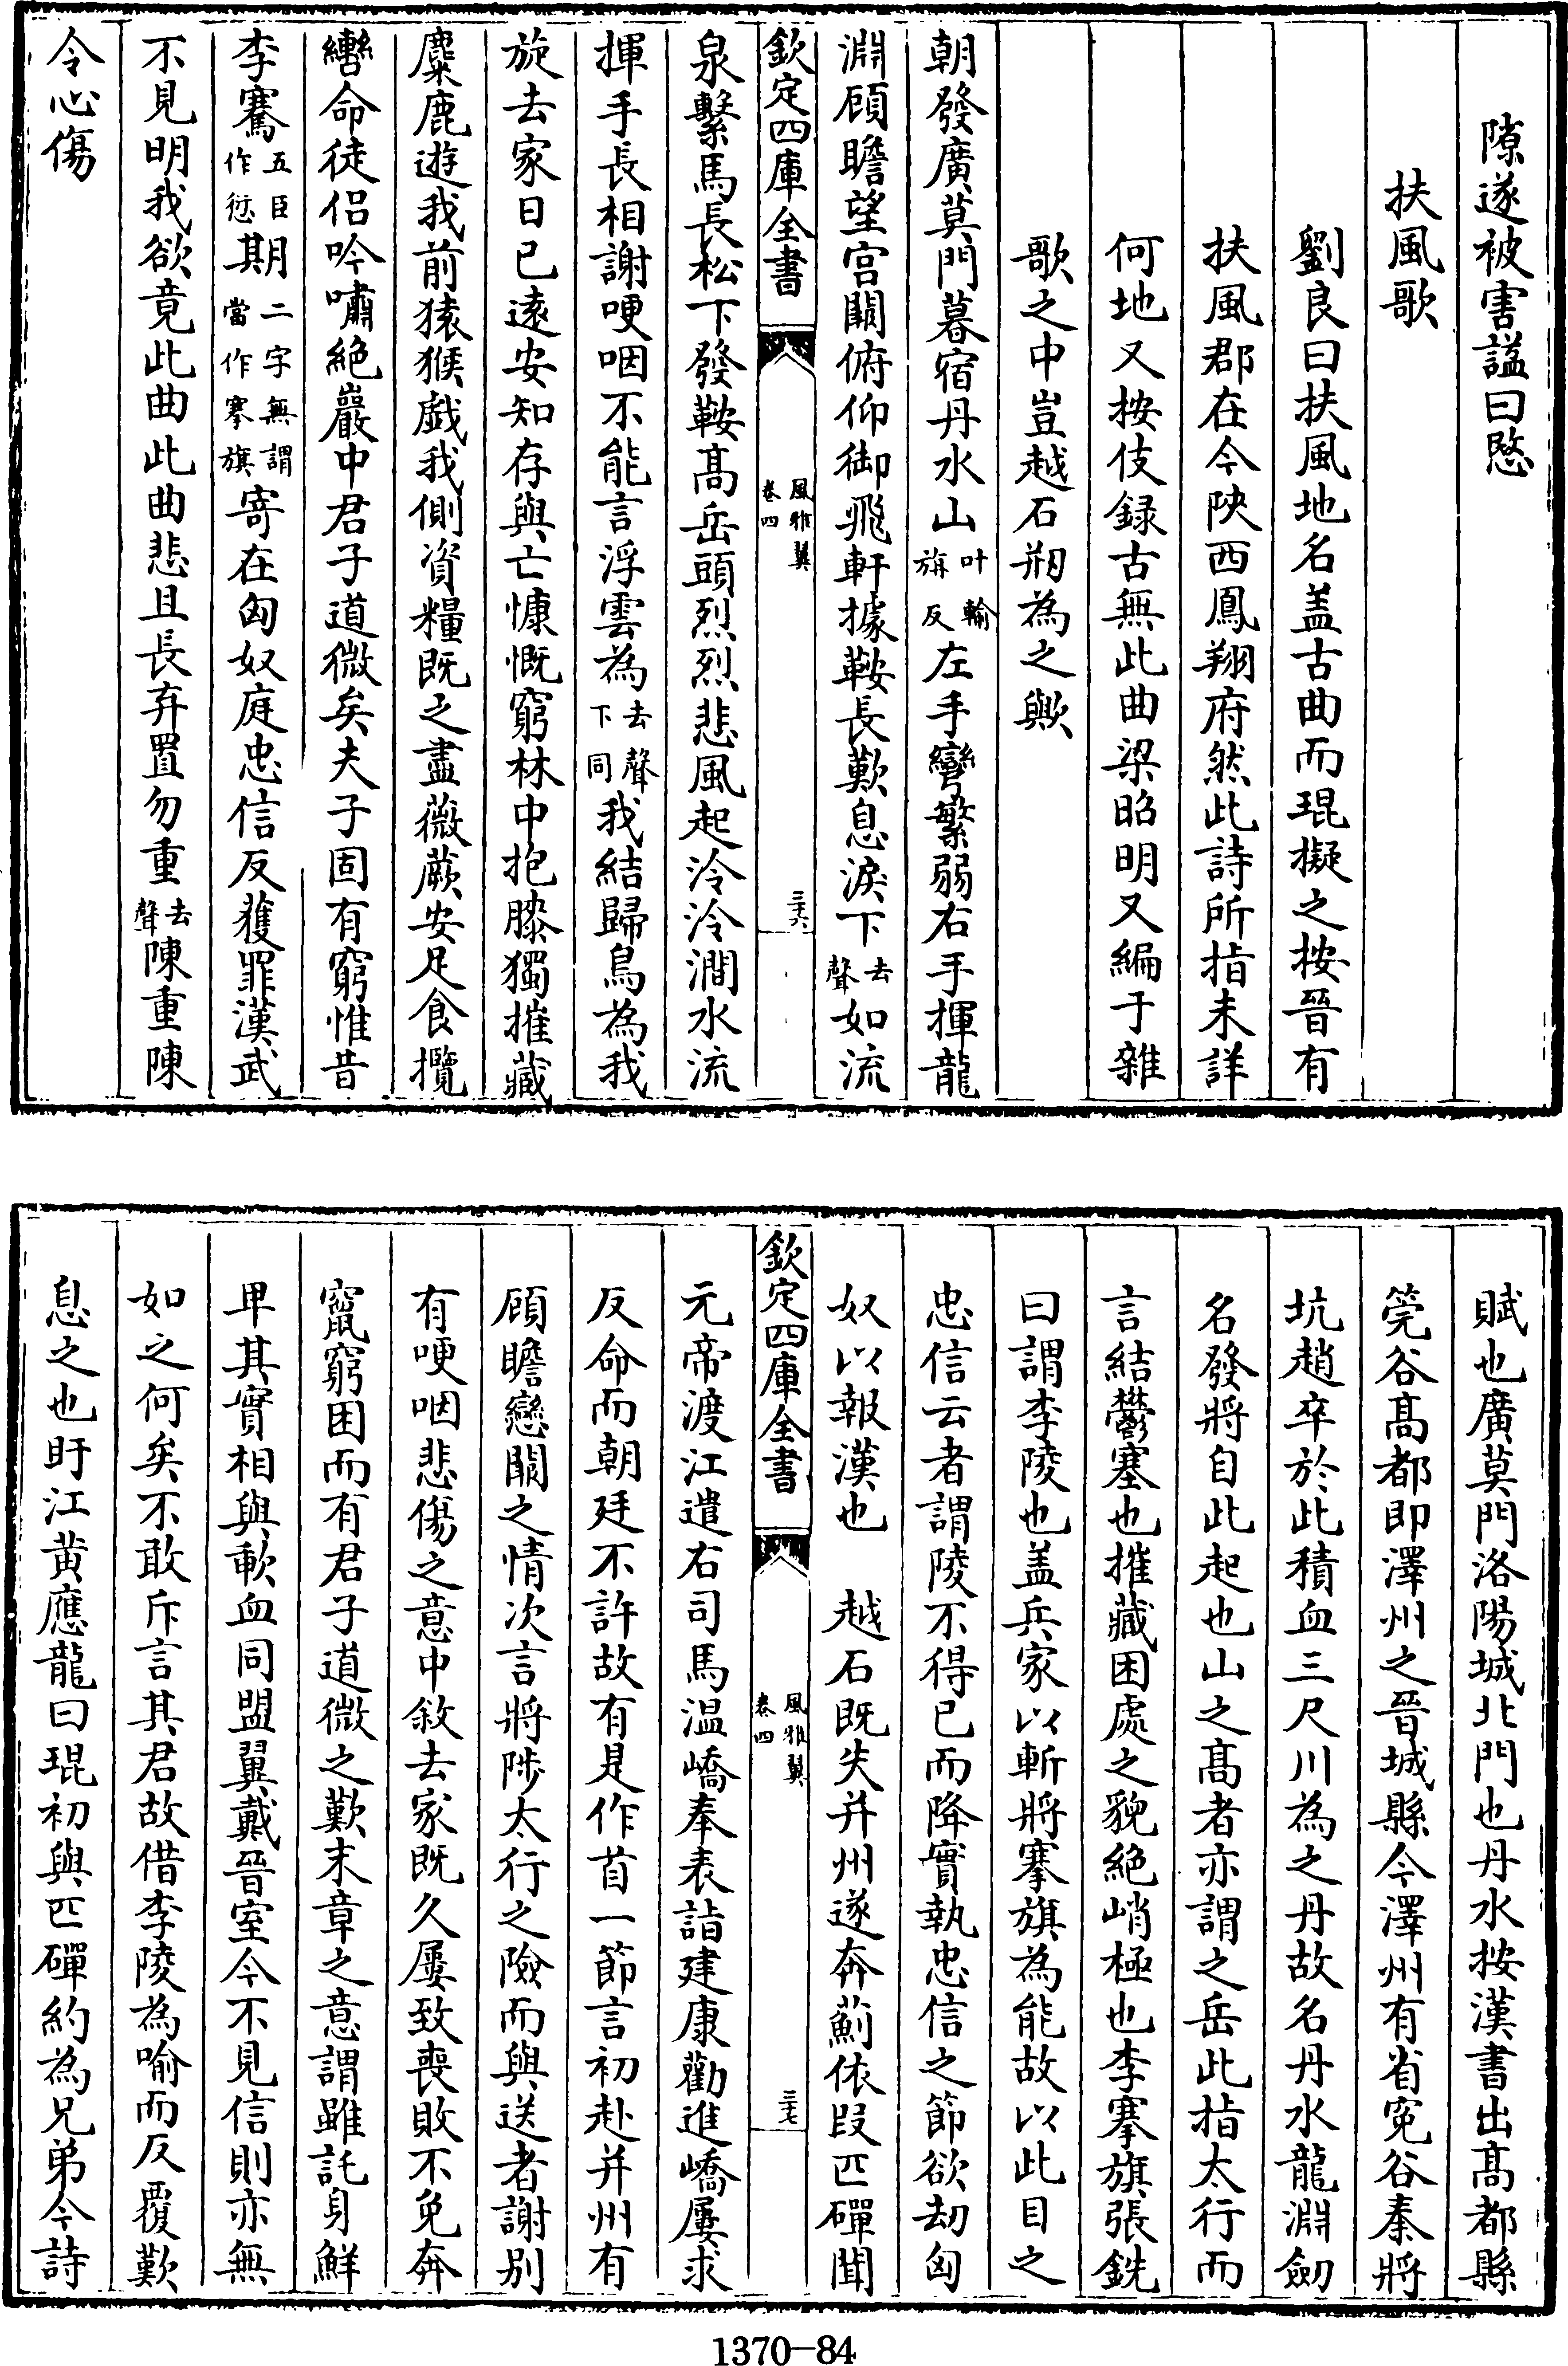 隙遂被害謚曰愍
扶風歌
劉良曰扶風地名盖古曲而琨擬之按晉有
扶風郡在今陜西鳳翔府然此詩所指未詳
何地又按伎録古無此曲梁昭明又編于雜
歌之中豈越石剏為之歟
朝發廣莫門暮宿丹水山叶輸旃反左手彎繁弱右手揮龍
淵顧瞻望宫闕俯仰御飛軒據鞍長歎息淚下去聲如流
欽定四庫全書
風雅翼
卷四
三十六
泉繫馬長松下發鞍髙岳頭烈烈悲風起泠泠澗水流
揮手長相謝哽咽不能言浮雲為去聲下同我結歸鳥為我
旋去家日已逺安知存與亡慷慨窮林中抱膝獨摧藏
麋鹿遊我前猿猴戯我側資糧既乏盡薇蕨安足食攬
轡命徒侣吟嘯絶巖中君子道微矣夫子固有窮惟昔
李騫五臣作愆期二字無謂當作搴旗寄在匈奴庭忠信反獲罪漢武
不見明我欲竟此曲此曲悲且長弃置勿重去聲陳重陳
令心傷
賦也廣莫門洛陽城北門也丹水按漢書出髙都縣
筦谷髙都即澤州之晉城縣今澤州有省寃谷秦將
坑趙卒於此積血三尺川為之丹故名丹水龍淵劒
名發將自此起也山之髙者亦謂之岳此指太行而
言結鬱塞也摧藏困處之貌絶峭極也李搴旗張銑
曰謂李陵也盖兵家以斬將搴旗為能故以此目之
忠信云者謂陵不得已而降實執忠信之節欲刼匈
奴以報漢也　越石既失并州遂奔薊依段匹磾聞
欽定四庫全書
風雅翼
卷四
三十七
元帝渡江遣右司馬温嶠奉表詣建康勸進嶠屢求
反命而朝廷不許故有是作首一節言初赴并州有
顧瞻戀闕之情次言將陟太行之險而與送者謝别
有哽咽悲傷之意中敘去家既久屢致喪敗不免奔
竄窮困而有君子道微之歎末章之意謂雖託身鮮
卑其實相與歃血同盟翼戴晉室今不見信則亦無
如之何矣不敢斥言其君故借李陵為喻而反覆歎
息之也盱江黄應龍曰琨初與匹磾約為兄弟今詩
1370-84